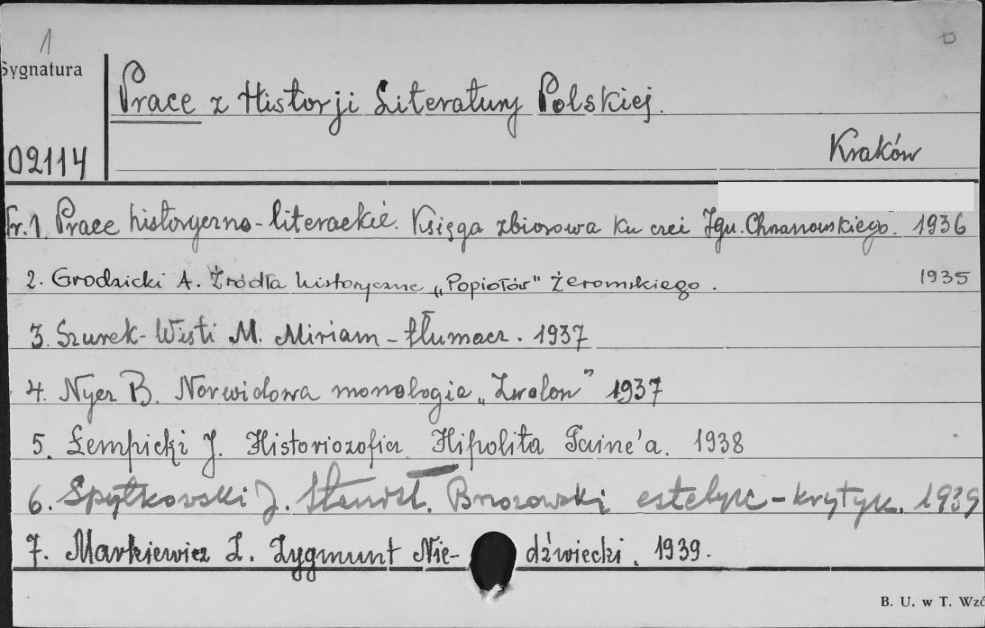 1
Sygnatura
Prace z Historji Literatury Polskiej.
02114
Kraków
Nr. 1. Prace historyczno-literackie. Księga zbiorowa ku czci Ign. Chrzanowskiego. 1936
2. Grodzicki A. Źródła historyczne „Popiołów" Żeromskiego. 1935
3. Szurek-Wisti M. Miriam - tłumacz. 1937
4. Nyer B. Norwidowa monologia „Zwolon" 1937
5. Łempicki J. Historiozofia Hipolita Taine'a. 1938
6. Spytkowski J. Stanisł. Brzozowski estetyk - krytyk. 1939
7. Markiewicz Z. Zygmunt Niedźwiecki. 1939.
B. U. w T. Wzó